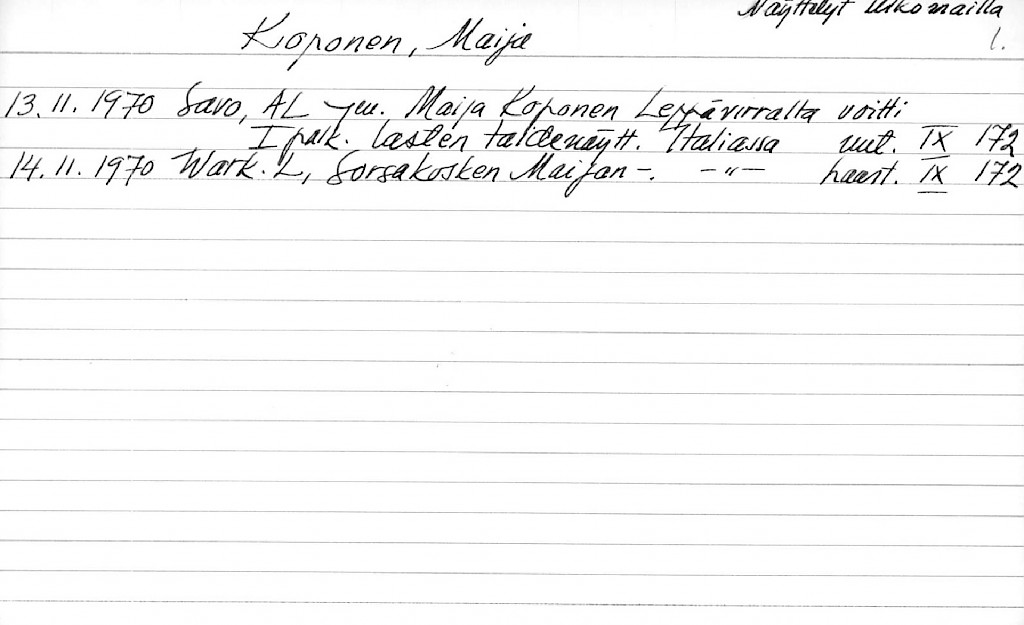 Näyttelyt ulkomailla
1.
Koponen, Maija
13.11.1970 Savo, AL ym. Maija Koponen Leppävirralta voitti
I palk. lasten taidenäytt. Italiassa uut. IX 172
14.11.1970 Wark. L, Sorsakosken Maijan -. -"- haast. IX 172